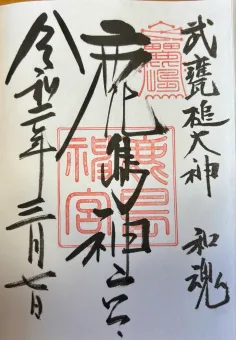 武甕槌大神 和魂
鹿島神宮
令和二年三月七日
鹿島
神宮